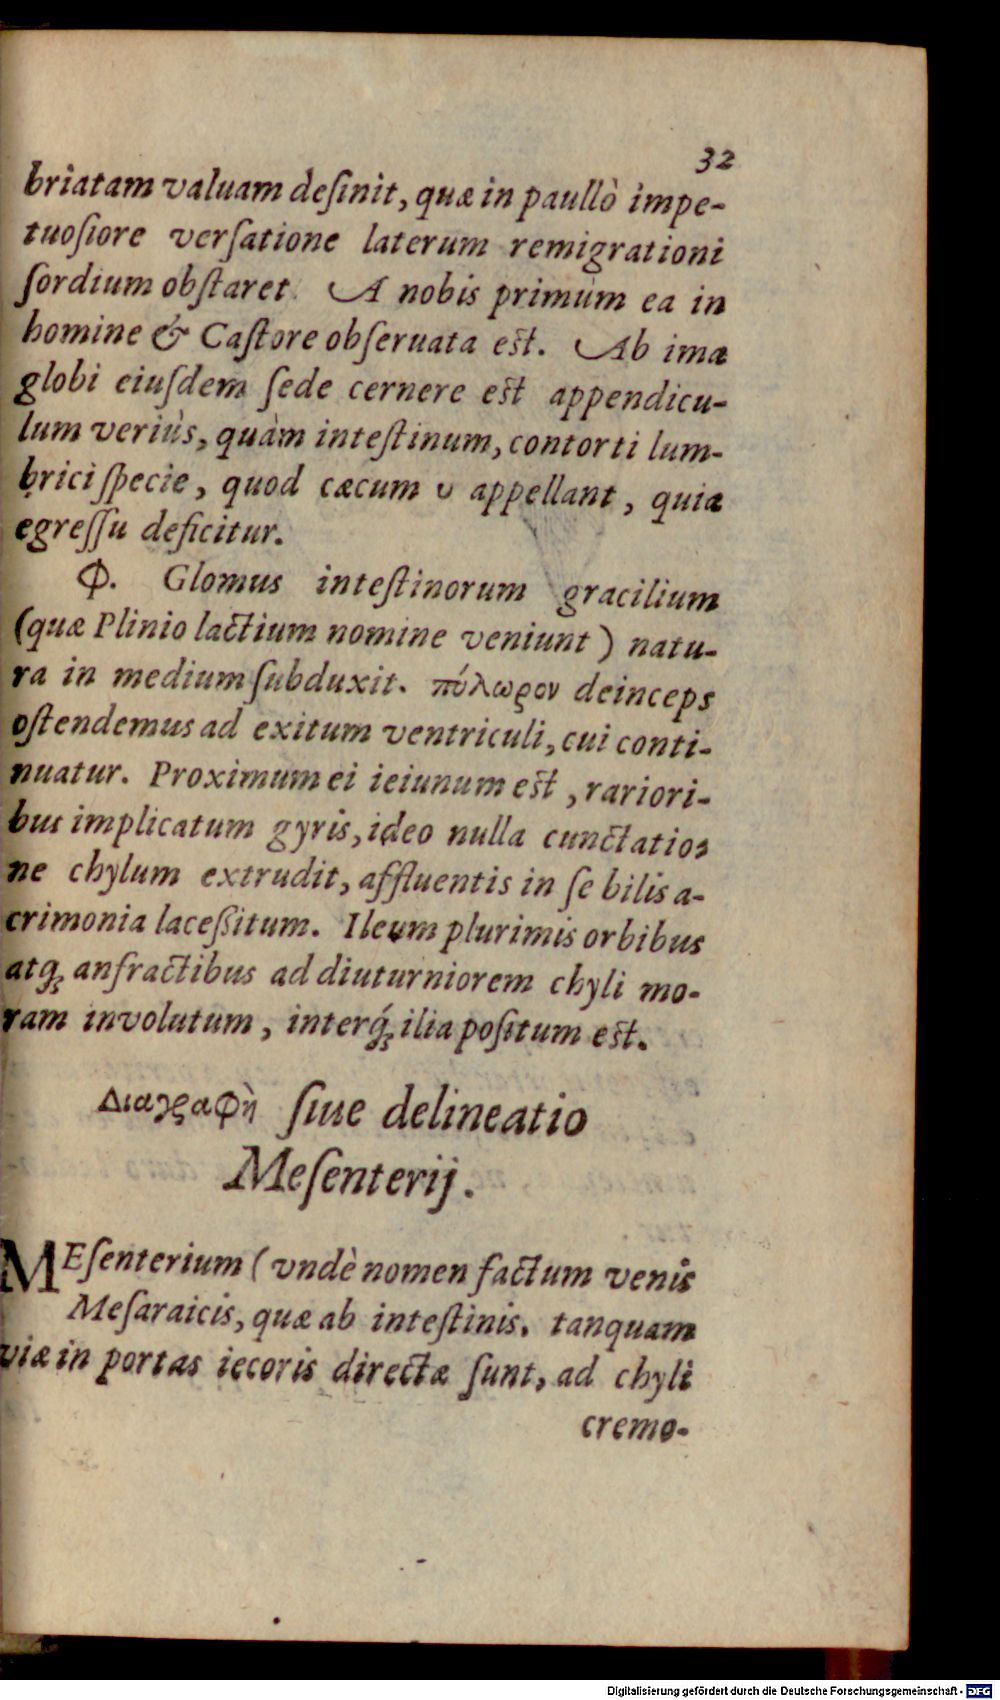 32
briatam valuam deſinit, quæ in paullò impe-
tuoſiore verſatione laterum remigrationi
ſordium obſtaret. A nobis primùm ea in
homine & Caſtore obſeruata eſt. Ab ima
globi eiuſdem ſede cernere eſt appendicu-
lum veriùs, quàm inteſtinum, contorti lum-
brici ſpecie, quod cæcum υ appellant, quia
egreſſu deficitur.
Φ. Glomus inteſtinorum gracilium
(quæ Plinio lactium nomine veniunt) natu-
ra in medium ſubduxit. πύλωρον deinceps
oſtendemus ad exitum ventriculi, cui conti-
nuatur. Proximum ei ieiunum eſt, rariori-
bus implicatum gyris, ideo nulla cunctatio-
ne chylum extrudit, affluentis in ſe bilis a-
crimonia laceßitum. Ileum plurimis orbibus
atq; anfractibus ad diuturniorem chyli mo-
ram involutum, interq́; ilia poſitum eſt.
Διαγραφὴ ſiue delineatio
Meſenterij.
MEſenterium (vndè nomen factum venis
Meſaraicis, quæ ab inteſtinis, tanquam
viæ in portas iecoris directæ ſunt, ad chyli
cremo-
Digitalisierung gefördert durch die Deutsche Forschungsgemeinschaft - DFG